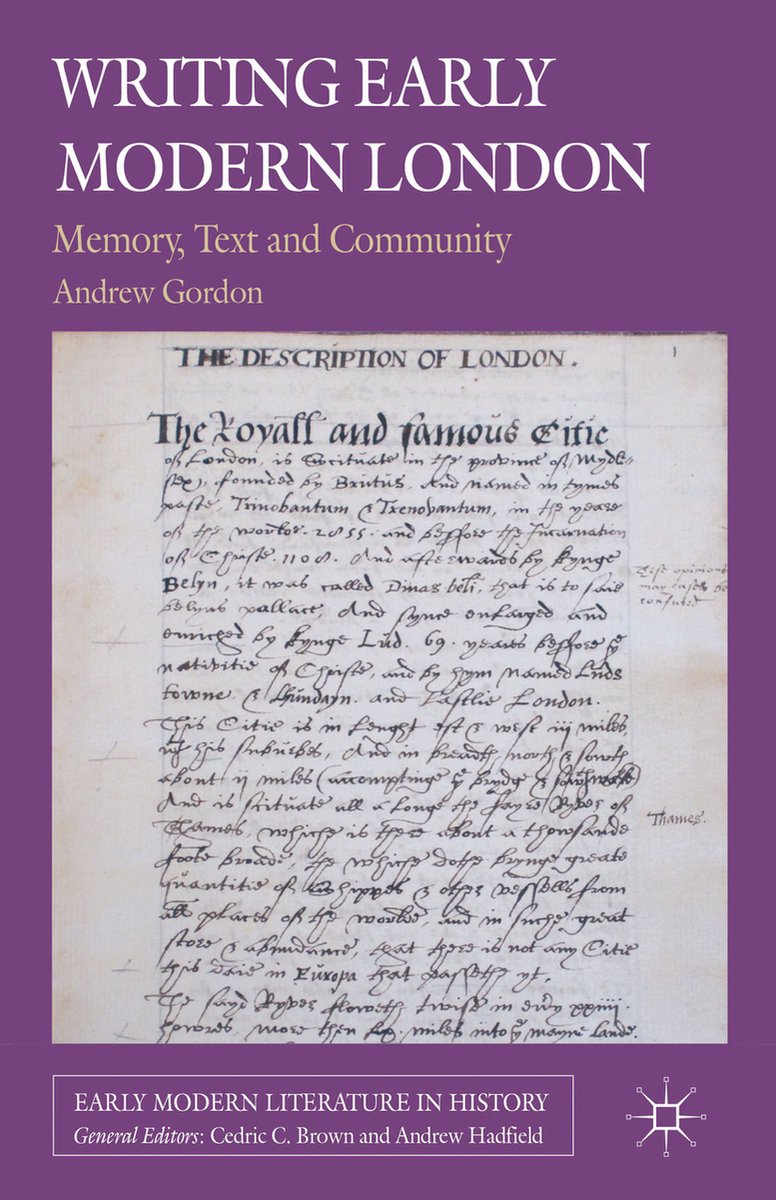 WRITING EARLY
MODERN LONDON
Memory, Text and Community
Andrew Gordon
THE DESCRIPTION OF LONDON.
1
The Royall and famous Citie
of London, is Scituate in the province of Mydle-
sex, founded by Brutus, And named in tymes
paste, Trinobantum & Trenovantum, in the yeare
of the worlde. 2855. and beffore the Incarnation
of Christe. 1108. And afterwards by kynge
Belyn, it was called Dinas beli, that is to saie
belyns pallace, And synce enlarged and
enriched by kynge Lud. 69. yeares beffore yͤ
nativitie of Christe, and by hym named Luds
towne, & Lhundayn. and Lastlie London.
This Citie is in lenght est & west iij miles,
wᵗʰ his suburbes, And in breadth, north & sowth
about ij miles (accomptinge yͤ brydge & sowthwarke)
And is scituate all a longe the fayre Ryver of
Thames, whiche is there about a thowsande
foote broade, the whiche dothe brynge greate
quantitie of Shippes & other vessells from
all places of the worlde, and in suche great
store & abundance, that there is not any Citie
this daie in Europa that passethe yt.
The sayd Ryver floweth twise in every xxiiij.
howres, more then lx. miles into yͤ mayne lande.
These opinions
may easely be
confuted
Thames.
EARLY MODERN LITERATURE IN HISTORY
General Editors: Cedric C. Brown and Andrew Hadfield